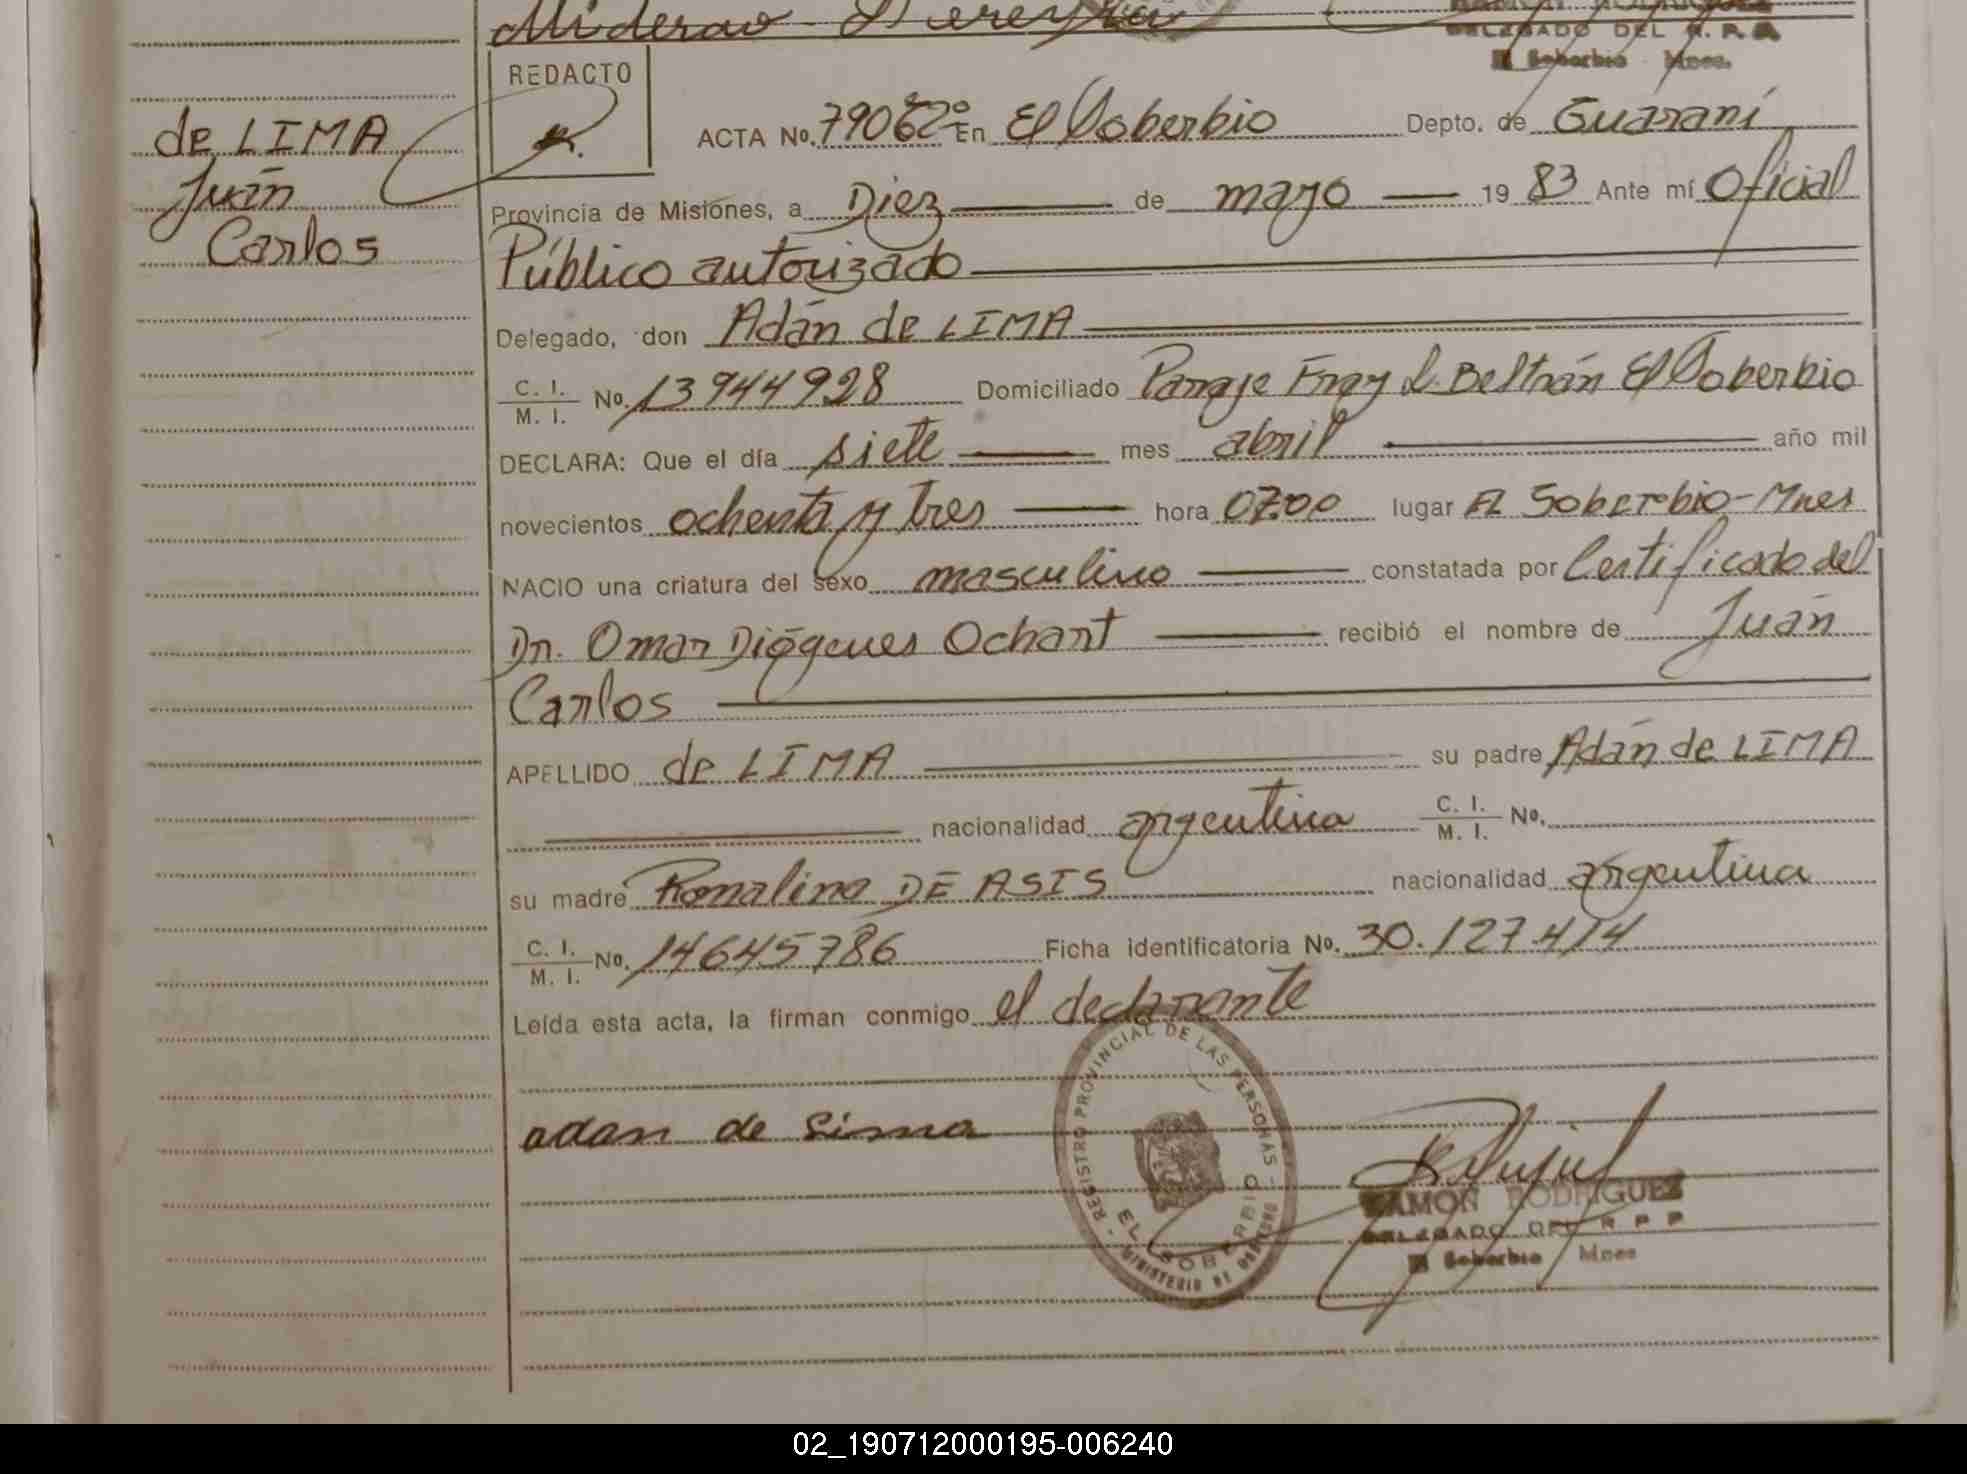 Pereyra
RAMON RODRIGUEZ
DELEGADO DEL R. P. P.
El Soberbio Mnes.
REDACTO
de LIMA
Juan
Carlos
ACTA No. 79062º En El Soberbio Depto. de Guaraní
Provincia de Misiones, a Diez de mayo 19 83 Ante mí Oficial
Público autorizado
Delegado, don Adán de LIMA
C. I.
M. I. No. 13944928 Domiciliado Paraje Fray L. Beltrán El Soberbio
DECLARA: Que el día siete mes abril año mil
novecientos ochenta y tres hora 07:00 lugar El Soberbio-Mnes
NACIO una criatura del sexo masculino constatada por Certificado del
Dr. Omar Diógenes Ochant recibió el nombre de Juan
Carlos
APELLIDO de LIMA su padre Adán de LIMA
nacionalidad argentina C. I.
M. I. No.
su madre Romalina DE ASIS nacionalidad argentina
C. I.
M. I. No. 14645786 Ficha identificatoria No. 30.127.414
Leída esta acta, la firman conmigo el declarante
adan de Lima
REGISTRO PROVINCIAL DE LAS PERSONAS - MINISTERIO DE GOBIERNO
EL SOBERBIO
RAMON RODRIGUEZ
DELEGADO DEL R P P
El Soberbio Mnes
02_190712000195-006240